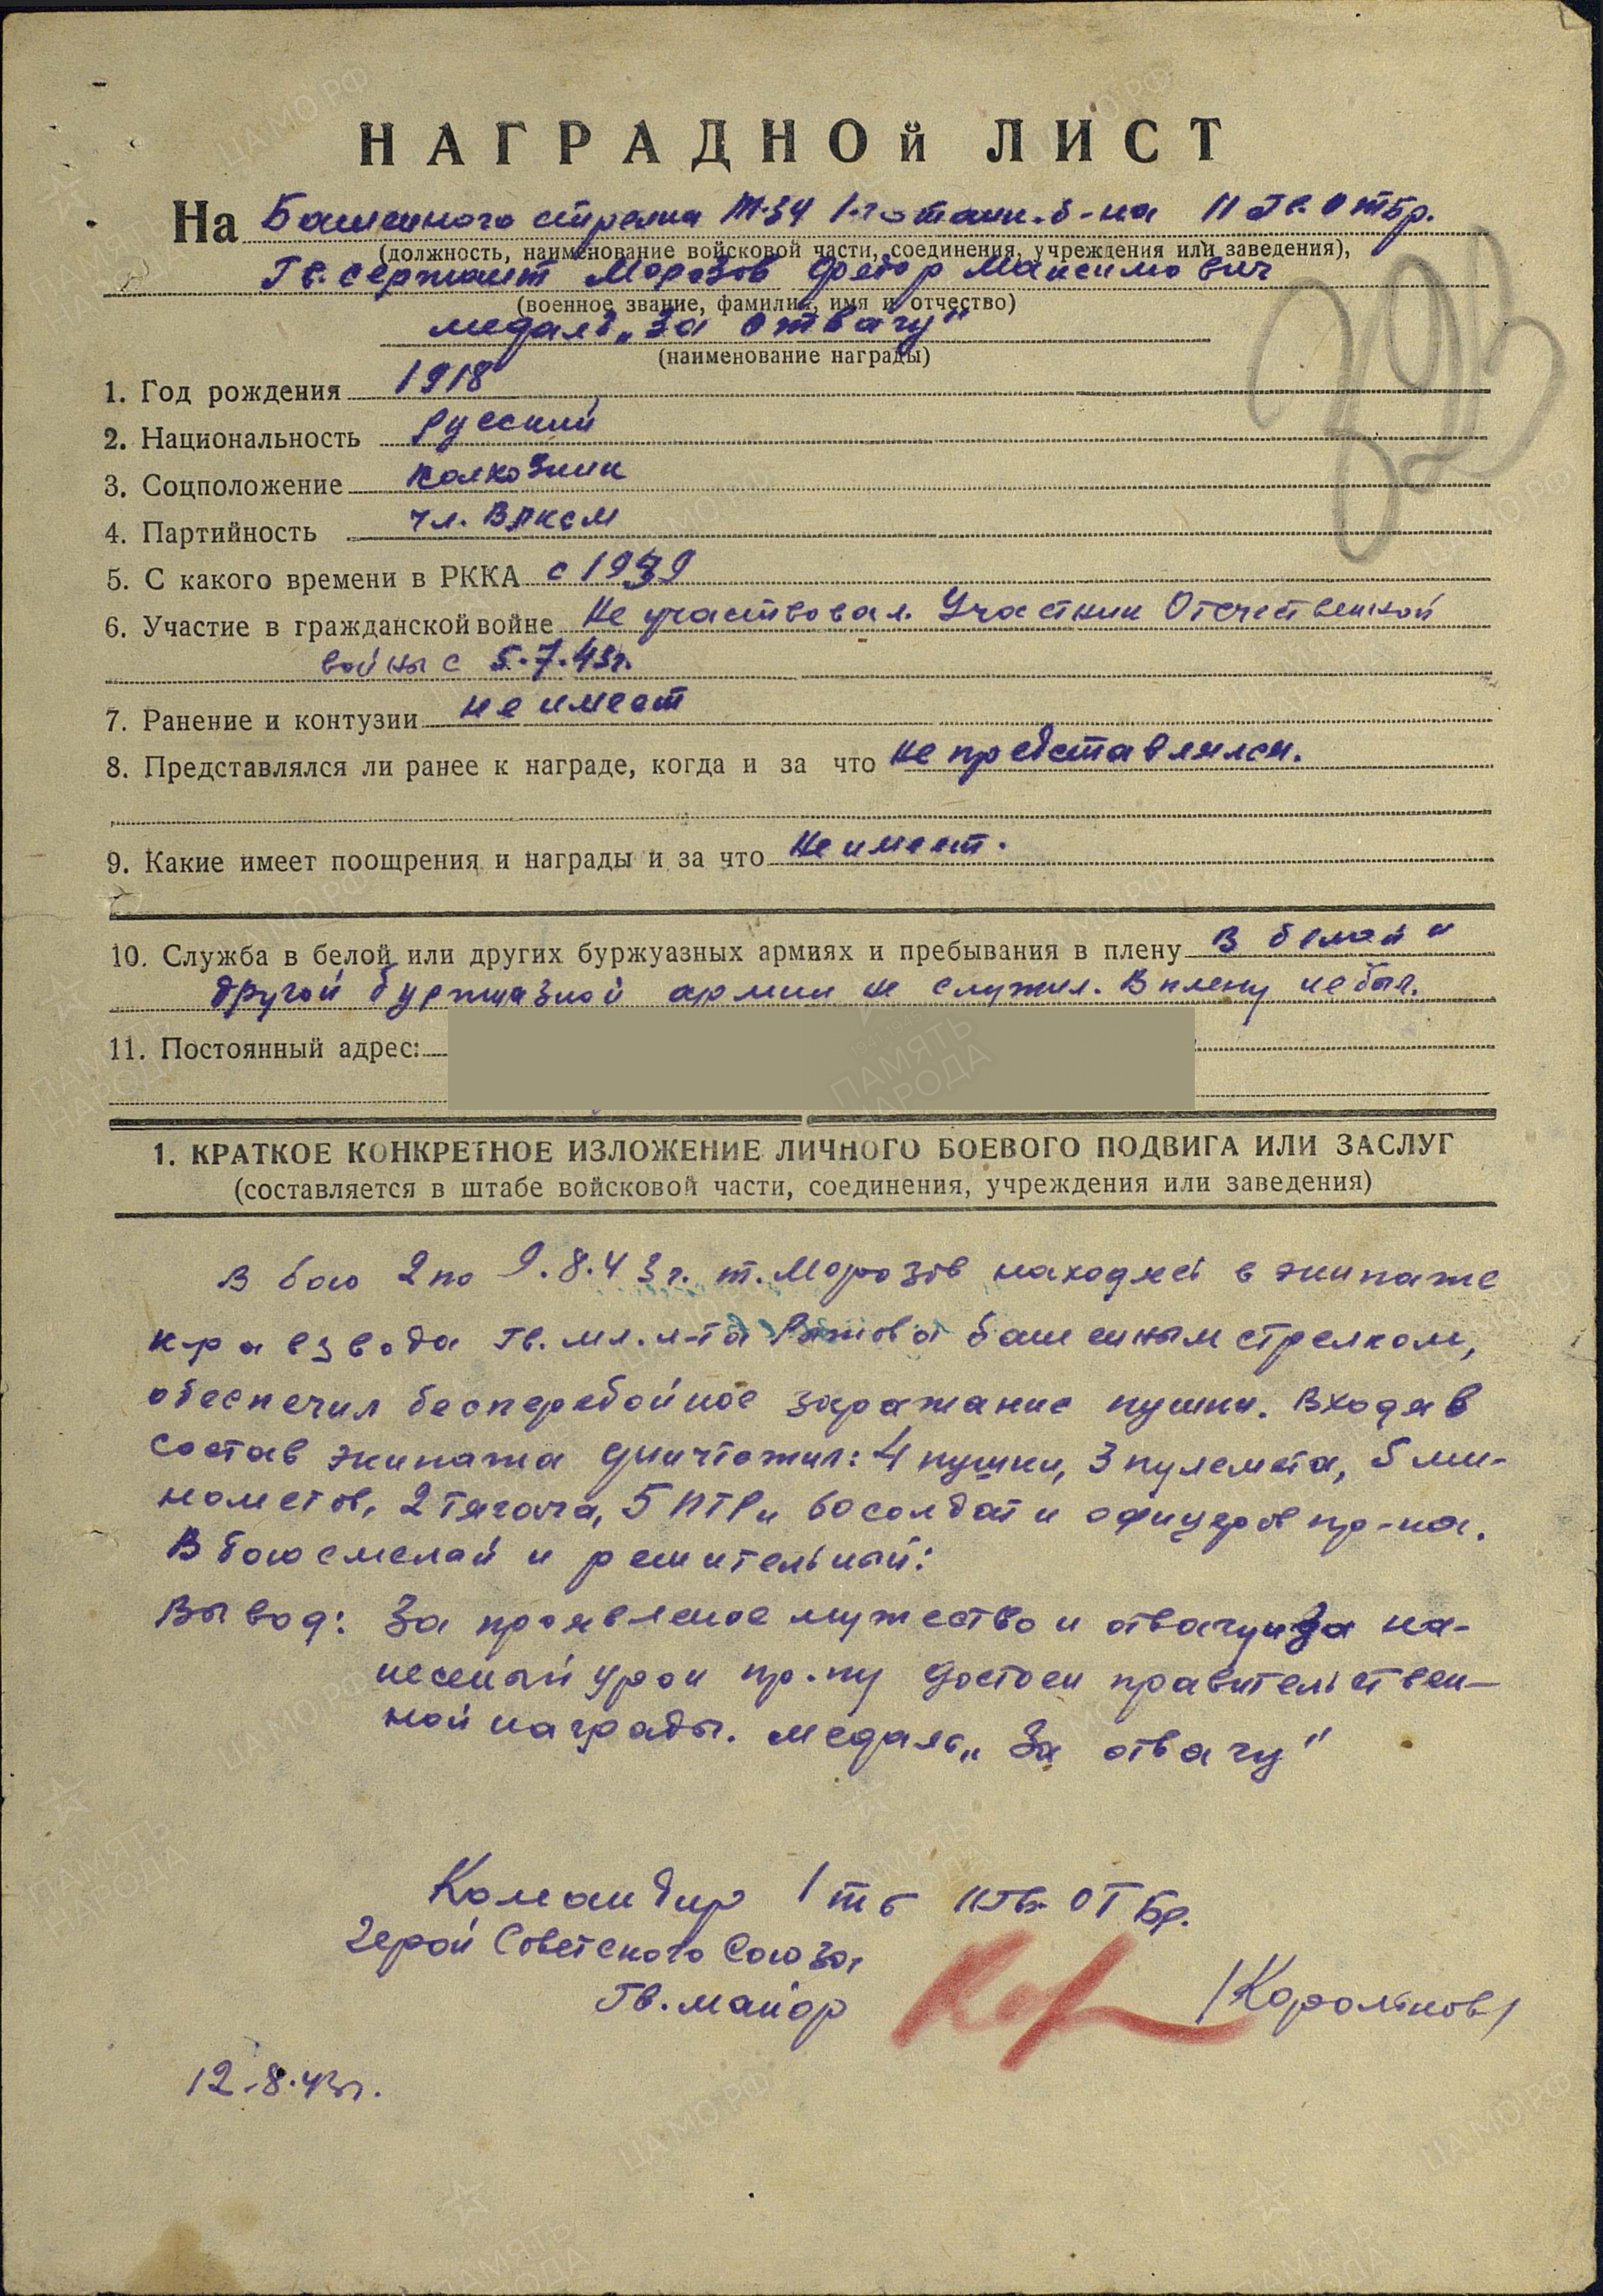 НАГРАДНОЙ ЛИСТ
На Башенного стрелка Т-34 1-го танк. б-на 11 Гв. ОТБр.
(должность, наименование войсковой части, соединения, учреждения или заведения),
Гв. сержант Морозов Федор Максимович
(военное звание, фамилия, имя и отчество)
медаль „За отвагу"
(наименование награды)
1. Год рождения 1918
2. Национальность Русский
3. Соцположение колхозник
4. Партийность чл. ВЛКСМ
5. С какого времени в РККА с 1939
6. Участие в гражданской войне Не участвовал. Участник Отечественной
войны с 5.7.43г.
7. Ранение и контузии не имеет
8. Представлялся ли ранее к награде, когда и за что не представлялся.
9. Какие имеет поощрения и награды и за что Не имеет.
10. Служба в белой или других буржуазных армиях и пребывания в плену В белой и
другой буржуазной армии не служил. В плену не был.
11. Постоянный адрес:
1. КРАТКОЕ КОНКРЕТНОЕ ИЗЛОЖЕНИЕ ЛИЧНОГО БОЕВОГО ПОДВИГА ИЛИ ЗАСЛУГ
(составляется в штабе войсковой части, соединения, учреждения или заведения)
В бою 2 по 9.8.43г. т. Морозов находясь в экипаже
к-ра взвода Гв. мл. л-та башенным стрелком,
обеспечил бесперебойное заряжание пушки. Входя в
состав экипажа уничтожил: 4 пушки, 3 пулемета, 5 ми-
нометов, 2 тягача, 5 ПТР и 60 солдат и офицеров пр-ка.
В бою смелай и решительный:
Вывод: За проявленое мужество и отвагу и за на-
несеный урон пр-ку достоен правительствен-
ной награды. медаль „За отвагу"
Командир 1 тб 11 Гв. ОТБр.
Герой Советского Союза,
Гв. майор /Корольков/
12.8.43г.
ЦАМО РФ
ПАМЯТЬ
НАРОДА